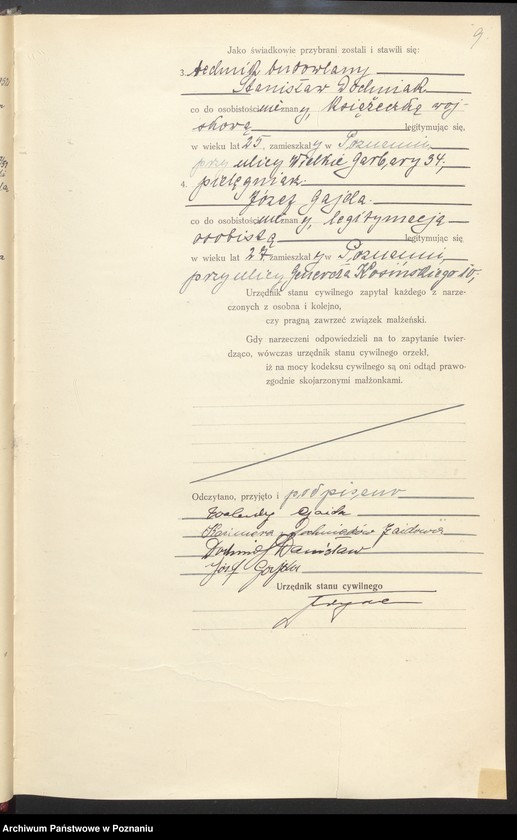 9.
Jako świadkowie przybrani zostali i stawili się:
3. technik budowlany
Stanisław Dochniak
co do osobistości nie znany, książeczką woj-
skową legitymując się,
w wieku lat 25. zamieszkały w Poznaniu,
przy ulicy Wielkie Garbary 34,
4. pielęgniarz
Józef Gajda
co do osobistości nie znany, legitymacją
osobistą legitymując się
w wieku lat 27 zamieszkały w Poznaniu,
przy ulicy Generała Kosińskiego 10,
Urzędnik stanu cywilnego zapytał każdego z narze-
czonych z osobna i kolejno,
czy pragną zawrzeć związek małżeński.
Gdy narzeczeni odpowiedzieli na to zapytanie twier-
dząco, wówczas urzędnik stanu cywilnego orzekł,
iż na mocy kodeksu cywilnego są oni odtąd prawo-
zgodnie skojarzonymi małżonkami.
Odczytano, przyjęto i podpisano
Gajda
Kazimiera Dochniaków
Dochniak Stanisław
Józef Gajda
Urzędnik stanu cywilnego
Archiwum Państwowe w Poznaniu